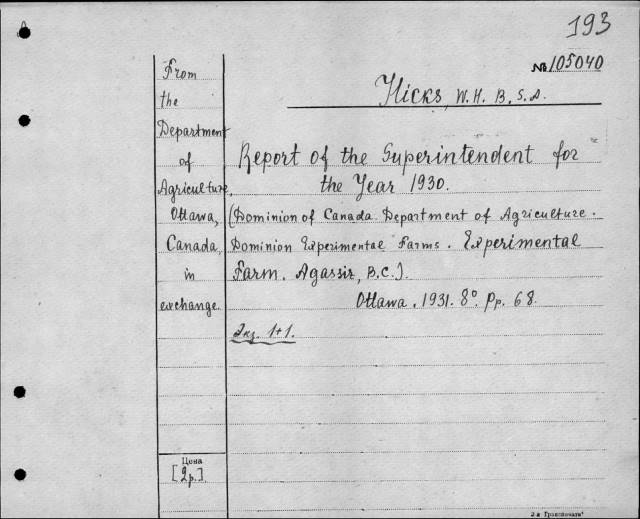 193
№ 105040
Hicks, W. H. B. S. A.
From
the
Department
of
Agriculture,
Ottawa,
Canada,
in
exchange
Report of the Superintendent for
the Year 1930.
(Dominion of Canada Department of Agriculture.
Dominion Experimental Farms. Experimental
Farm. Agassiz, B.C.).
Ottawa. 1931. 8°. Pp. 68.
2кз. 1+1.
Цена
[2р.]
2-я Гранпечать"